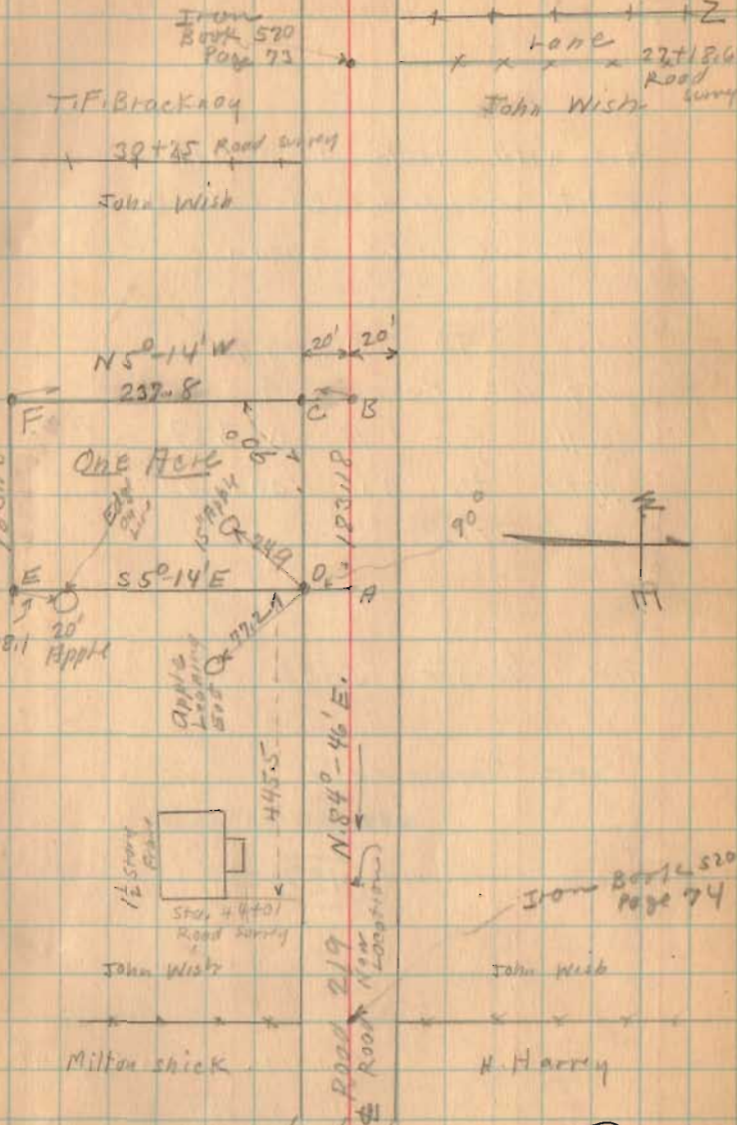 Iron
Book 520
Page 73
Lane
27+18.6
Road
survey
T.F. Bracknoy
John Wish
38+25 Road survey
John Wish
N 5°-14' W
237.8
20' 20'
F
C
B
One Acre
90°
Edge
on
Line
15" Apple
24.9
183.18
90°
E
S 5°-14' E
D
A
8.1
20'
Apple
37.2
Apple
Leaning
East
N
E
445.5
N. 84°-46' E.
1½ Story
Frame
Sta. 44+01
Road Survey
Iron Book 520
Page 74
John Wish
John Wish
Road 219
Road New
Location
Milton Shick
H. Harvey